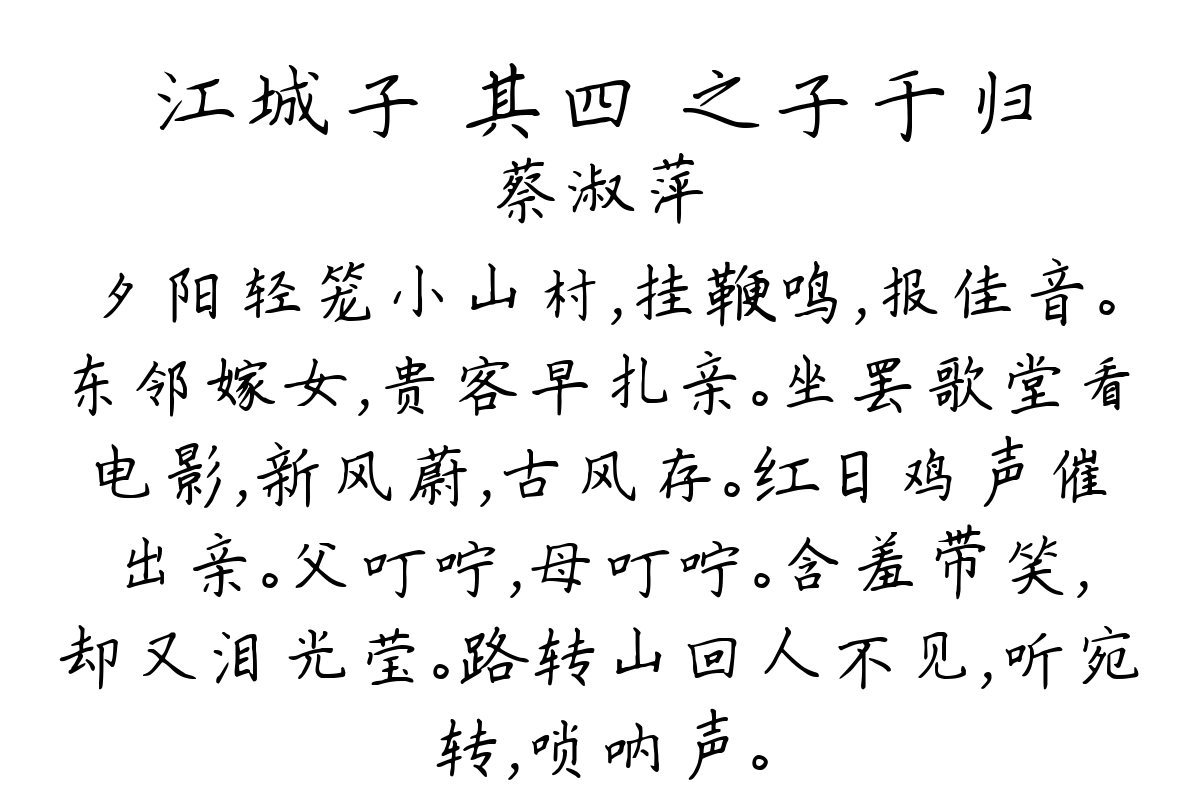 江城子 其四 之子于归
蔡淑萍
夕阳轻笼小山村,挂鞭鸣,报佳音。
东邻嫁女,贵客早扎亲。坐罢歌堂看
电影,新风蔚,古风存。红日鸡声催
出亲。父叮咛,母叮咛。含羞带笑,
却又泪光莹。路转山回人不见,听宛
转,唢呐声。